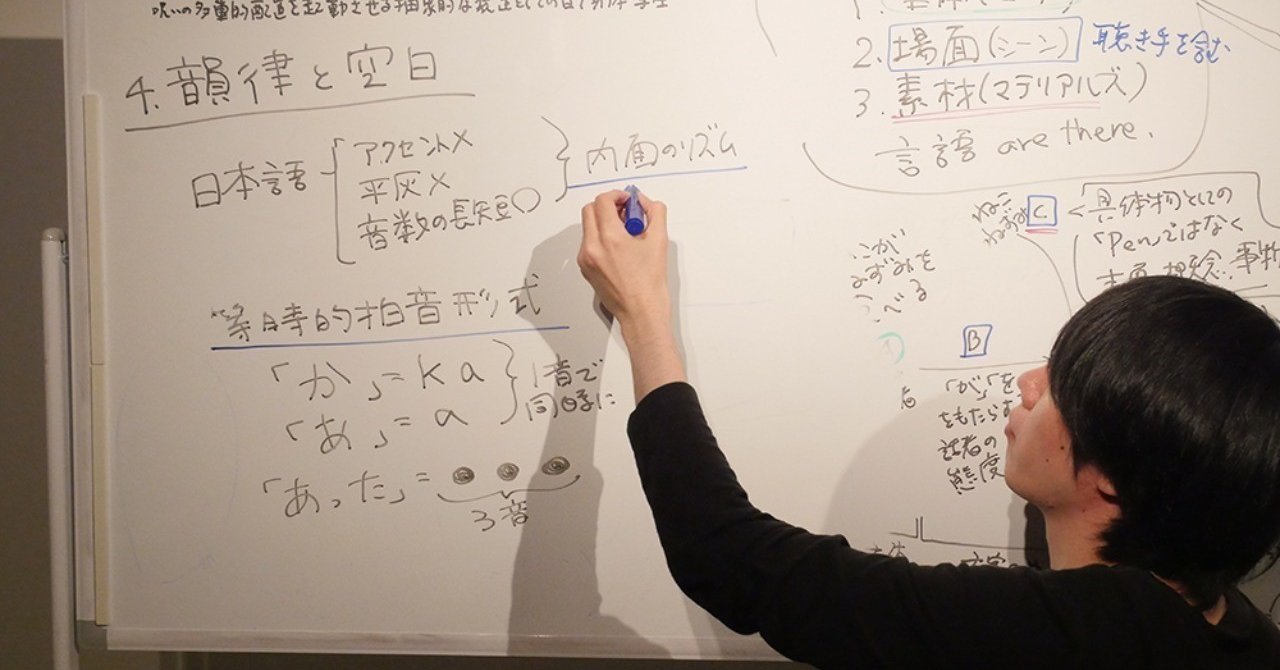 呪いの多重的配送を起動させる抽象的な装置としての
4.韻律と空白
日本語
アクセント×
平仄×
音数の長短○
内面のリズム
等時的拍音形式
「か」= ka
「あ」= a
1音で
同時に
「あった」=
3音
2.場面(シーン) 聴き手を含む
3.素材(マテリアルズ)
言語 are there.
ねこ
ねずみ
C
具体物としての
「Pen」ではなく
概念、事物
ねずみを
B
「が」「を
をもたらす
話者の
態度